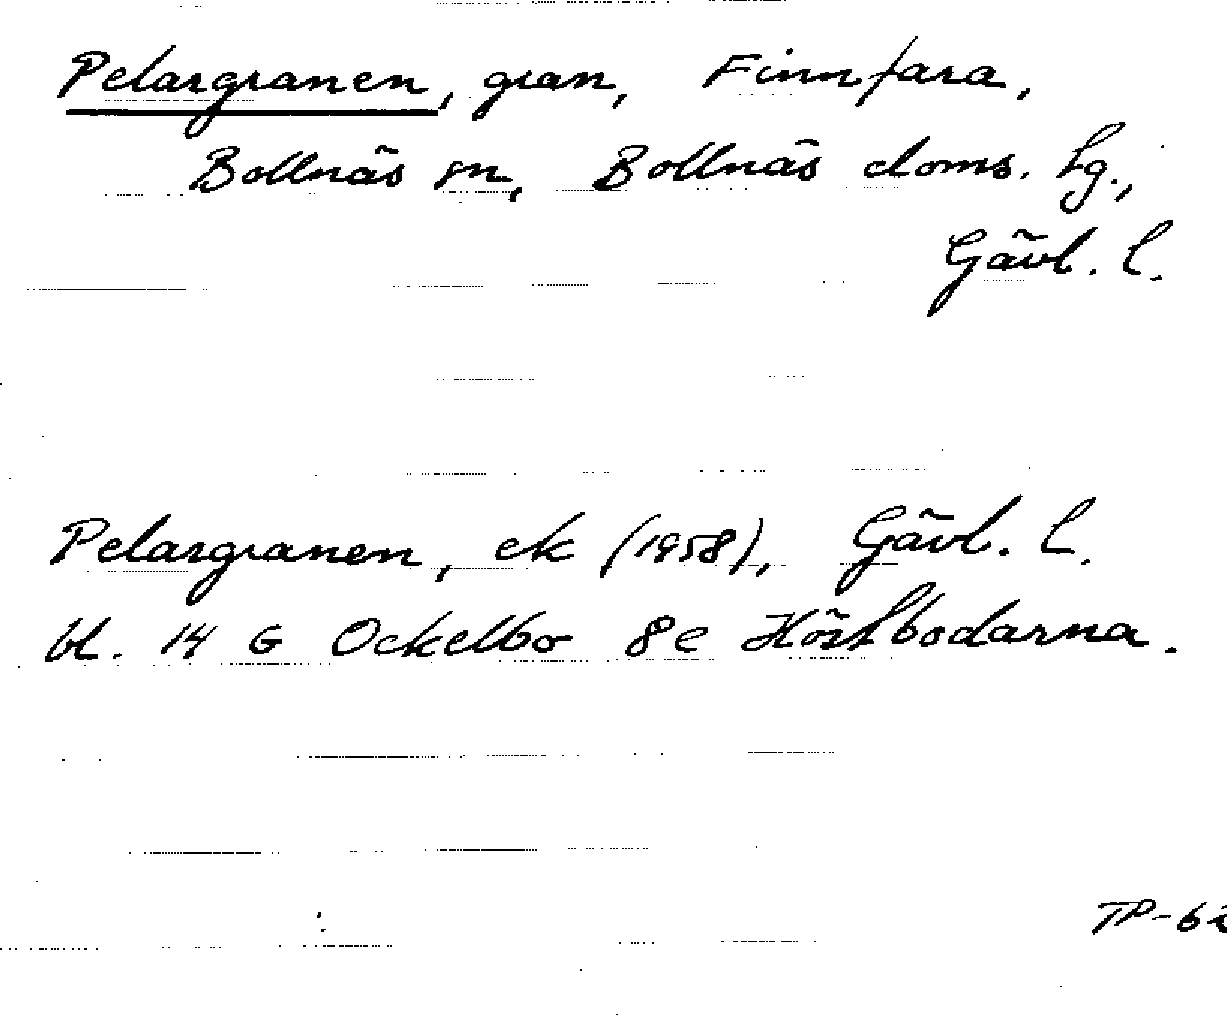 Pelargranen, gran, Finnfara,
Bollnäs sn, Bollnäs doms. lg.,
Gävl. l.
Pelargranen, ek (1958), Gävl. l.
bl. 14 G Ockelbo 8e Höstbodarna.